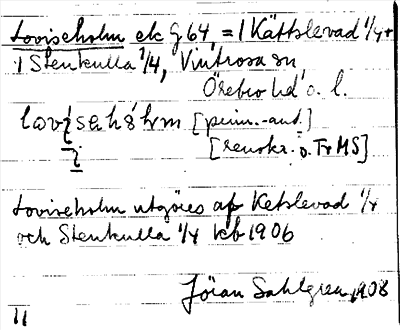 Loviseholm ek G 64 = 1 Kättslevad 1/4 +
1 Stenkulla 1/4, Vintrosa sn
Örebro hd o. l.
[prim.-ant.]
[renskr. o. Tr MS]
Loviseholm utgöres af Ketslevad 1/4
och Stenkulla 1/4 kb 1906
Jöran Sahlgren 1908
11